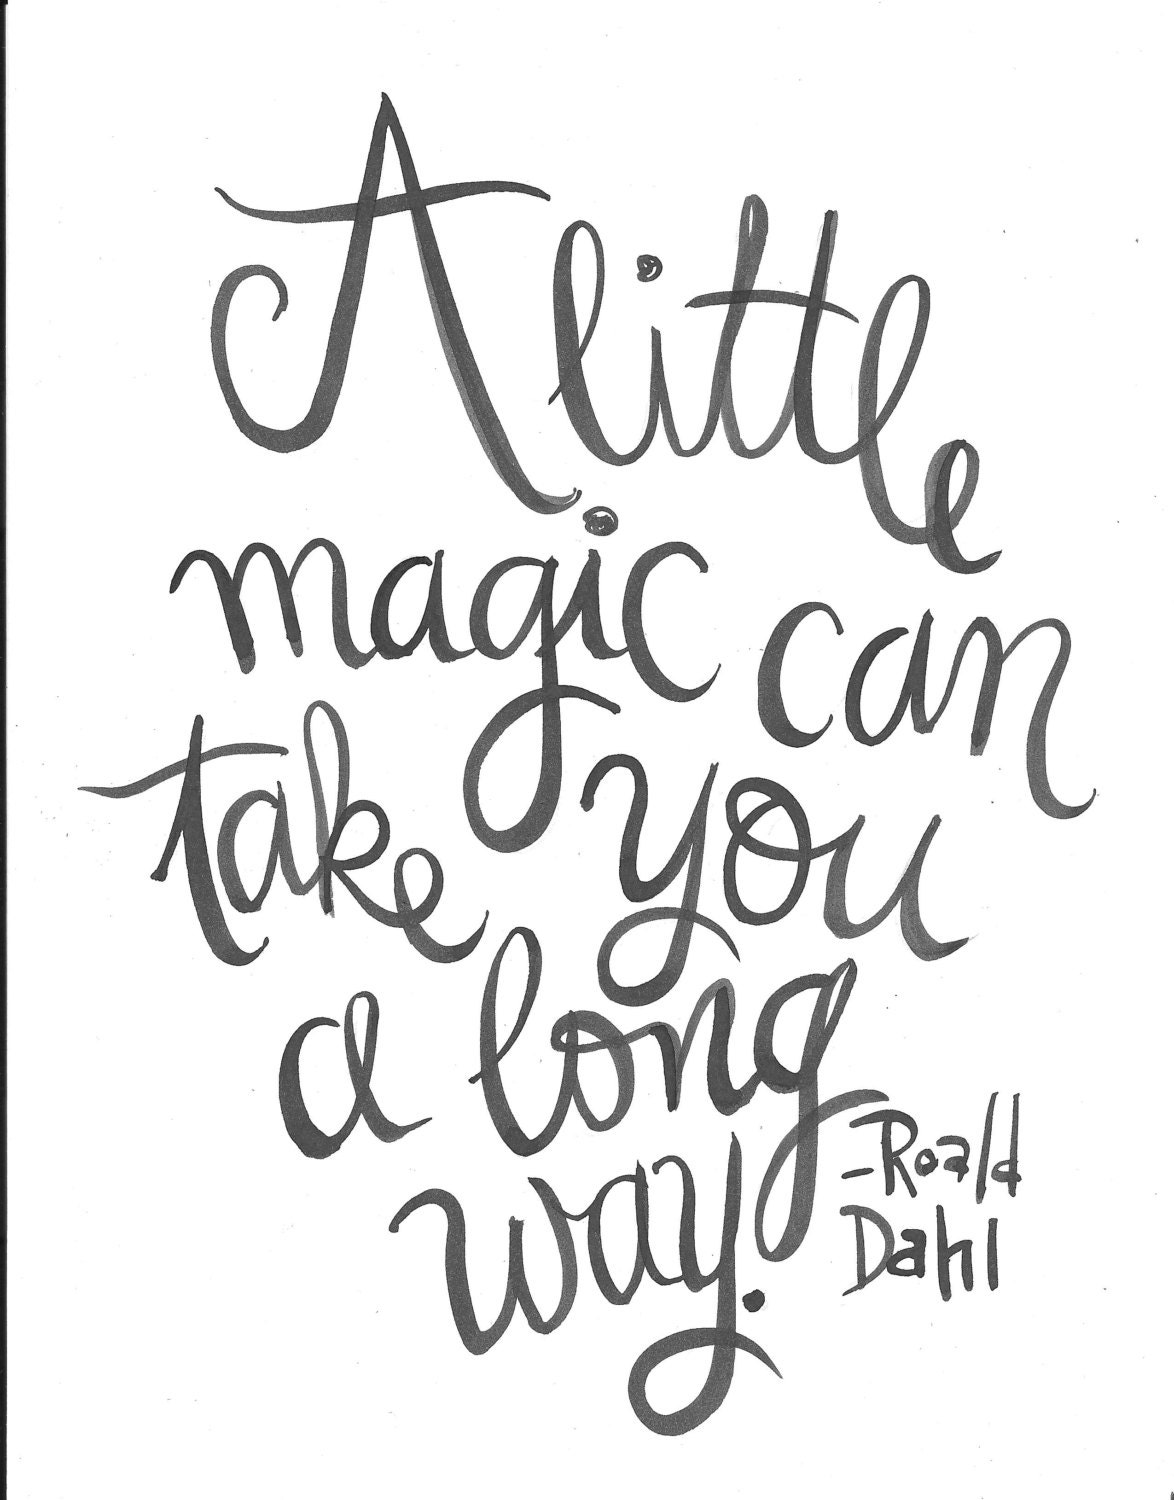 A little
magic can
take you
a long
way.
-Roald
Dahl